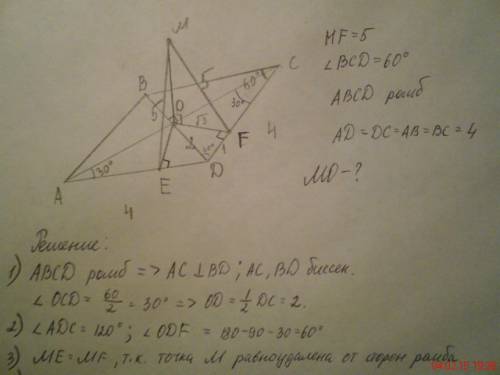 M
MF=5
∠BCD=60°
ABCD ромб
AD=DC=AB=BC=4
MO-?
B
C
5
60°
30°
O
√3
4
F
2
1
D
30°
A
E
4
Решение:
1) ABCD ромб => AC⊥BD; AC, BD биссек.
∠OCD = 60/2 = 30° => OD = 1/2 DC = 2.
2) ∠ADC=120°; ∠ODF = 180-90-30=60°
3) ME=MF, т.к. точка M равноудалена от сторон ромба